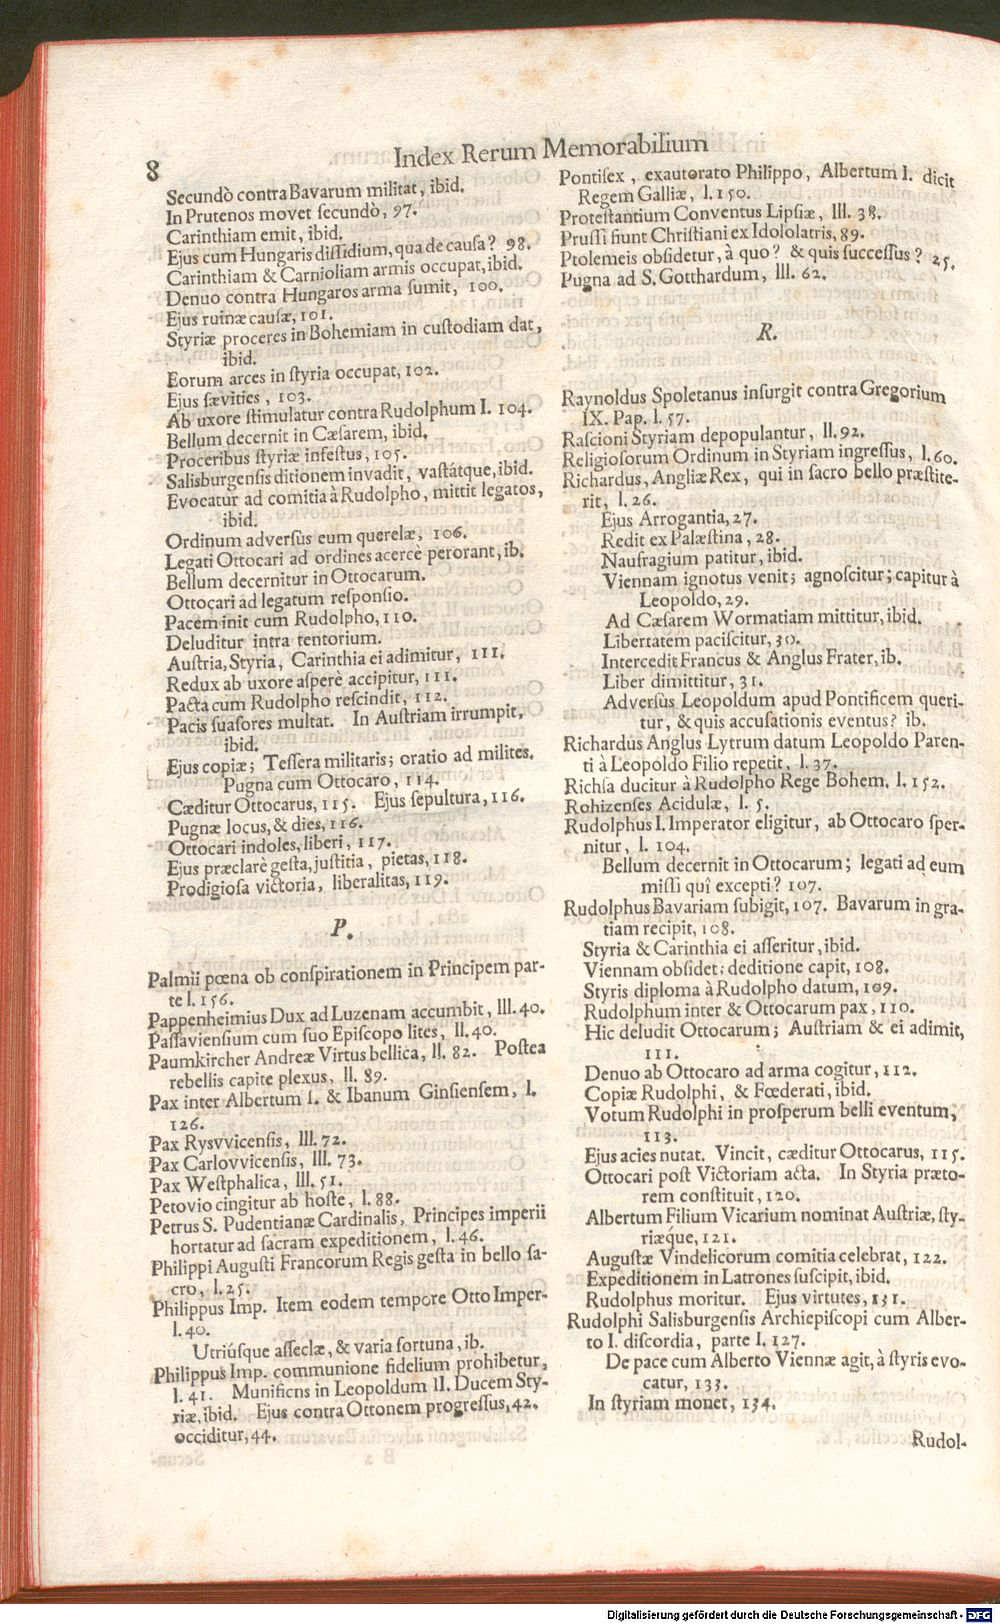 8
Index Rerum Memorabilium
Secundò contra Bavarum militat, ibid.
In Prutenos movet ſecundò, 97.
Carinthiam emit, ibid.
Ejus cum Hungaris diſſidium, qua de cauſa? 98.
Carinthiam & Carnioliam armis occupat, ibid.
Denuo contra Hungaros arma ſumit, 100.
Ejus ruinæ cauſæ, 101.
Styriæ proceres in Bohemiam in cuſtodiam dat,
ibid.
Eorum arces in ſtyria occupat, 102.
Ejus ſævities, 103.
Ab uxore ſtimulatur contra Rudolphum I. 104.
Bellum decernit in Cæſarem, ibid.
Proceribus ſtyriæ infeſtus, 105.
Salisburgenſis ditionem invadit, vaſtátque, ibid.
Evocatur ad comitia à Rudolpho, mittit legatos,
ibid.
Ordinum adverſùs eum querelæ, 106.
Legati Ottocari ad ordines acercè perorant, ib.
Bellum decernitur in Ottocarum.
Ottocari ad legatum reſponſio.
Pacem init cum Rudolpho, 110.
Deluditur intra tentorium.
Auſtria, Styria, Carinthia ei adimitur, 111.
Redux ab uxore aſperè accipitur, 111.
Pacta cum Rudolpho reſcindit, 112.
Pacis ſuaſores multat. In Auſtriam irrumpit,
ibid.
Ejus copiæ; Teſſera militaris; oratio ad milites.
Pugna cum Ottocaro, 114.
Cæditur Ottocarus, 115. Ejus ſepultura, 116.
Pugnæ locus, & dies, 116.
Ottocari indoles, liberi, 117.
Ejus præclarè geſta, juſtitia, pietas, 118.
Prodigioſa victoria, liberalitas, 119.
P.
Palmii pœna ob conſpirationem in Principem par-
te I. 156.
Pappenheimius Dux ad Luzenam accumbit, III. 40.
Paſſavienſium cum ſuo Epiſcopo lites, II. 40.
Paumkircher Andreæ Virtus bellica, II. 82. Poſtea
rebellis capite plexus, II. 89.
Pax inter Albertum I. & Ibanum Ginſienſem, I.
126.
Pax Rysvvicenſis, III. 72.
Pax Carlovvicenſis, III. 73.
Pax Weſtphalica, III. 51.
Petovio cingitur ab hoſte, I. 88.
Petrus S. Pudentianæ Cardinalis, Principes imperii
hortatur ad ſacram expeditionem, I. 46.
Philippi Auguſti Francorum Regis geſta in bello ſa-
cro, I. 25.
Philippus Imp. Item eodem tempore Otto Imper-
I. 40.
Utriúſque aſſeclæ, & varia fortuna, ib.
Philippus Imp. communione fidelium prohibetur,
I. 41. Munificns in Leopoldum II. Ducem Sty-
riæ, ibid. Ejus contra Ottonem progreſſus, 42.
occiditur, 44.
Pontifex, exautorato Philippo, Albertum I. dicit
Regem Galliæ, I. 150.
Proteſtantium Conventus Lipſiæ, III. 38.
Pruſſi fiunt Chriſtiani ex Idololatris, 89.
Ptolemeis obſidetur, à quo? & quis ſucceſſus? 25.
Pugna ad S. Gotthardum, III. 62.
R.
Raynoldus Spoletanus inſurgit contra Gregorium
IX. Pap. I. 57.
Raſcioni Styriam depopulantur, II. 92.
Religioſorum Ordinum in Styriam ingreſſus, I. 60.
Richardus, Angliæ Rex, qui in ſacro bello præſtite-
rit, I. 26.
Ejus Arrogantia, 27.
Redit ex Palæſtina, 28.
Naufragium patitur, ibid.
Viennam ignotus venit; agnoſcitur; capitur à
Leopoldo, 29.
Ad Cæſarem Wormatiam mittitur, ibid.
Libertatem paciſcitur, 30.
Intercedit Francus & Anglus Frater, ib.
Liber dimittitur, 31.
Adverſùs Leopoldum apud Pontificem queri-
tur, & quis accuſationis eventus? ib.
Richardus Anglus Lytrum datum Leopoldo Paren-
ti à Leopoldo Filio repetit, I. 37.
Richſa ducitur à Rudolpho Rege Bohem. I. 152.
Rohizenſes Acidulæ, I. 5.
Rudolphus I. Imperator eligitur, ab Ottocaro ſper-
nitur, I. 104.
Bellum decernit in Ottocarum; legati ad eum
miſſi quî excepti? 107.
Rudolphus Bavariam ſubigit, 107. Bavarum in gra-
tiam recipit, 108.
Styria & Carinthia ei aſſeritur, ibid.
Viennam obſidet; deditione capit, 108.
Styris diploma à Rudolpho datum, 109.
Rudolphum inter & Ottocarum pax, 110.
Hic deludit Ottocarum; Auſtriam & ei adimit,
111.
Denuo ab Ottocaro ad arma cogitur, 112.
Copiæ Rudolphi, & Fœderati, ibid.
Votum Rudolphi in proſperum belli eventum,
113.
Ejus acies nutat. Vincit, cæditur Ottocarus, 115.
Ottocari poſt Victoriam acta. In Styria præto-
rem conſtituit, 120.
Albertum Filium Vicarium nominat Auſtriæ, ſty-
riæque, 121.
Auguſtæ Vindelicorum comitia celebrat, 122.
Expeditionem in Latrones ſuſcipit, ibid.
Rudolphus moritur. Ejus virtutes, 131.
Rudolphi Salisburgenſis Archiepiſcopi cum Alber-
to I. diſcordia, parte I. 127.
De pace cum Alberto Viennæ agit, à ſtyris evo-
catur, 133.
In ſtyriam monet, 134.
Rudol-
Digitalisierung gefördert durch die Deutsche Forschungsgemeinschaft - DFG